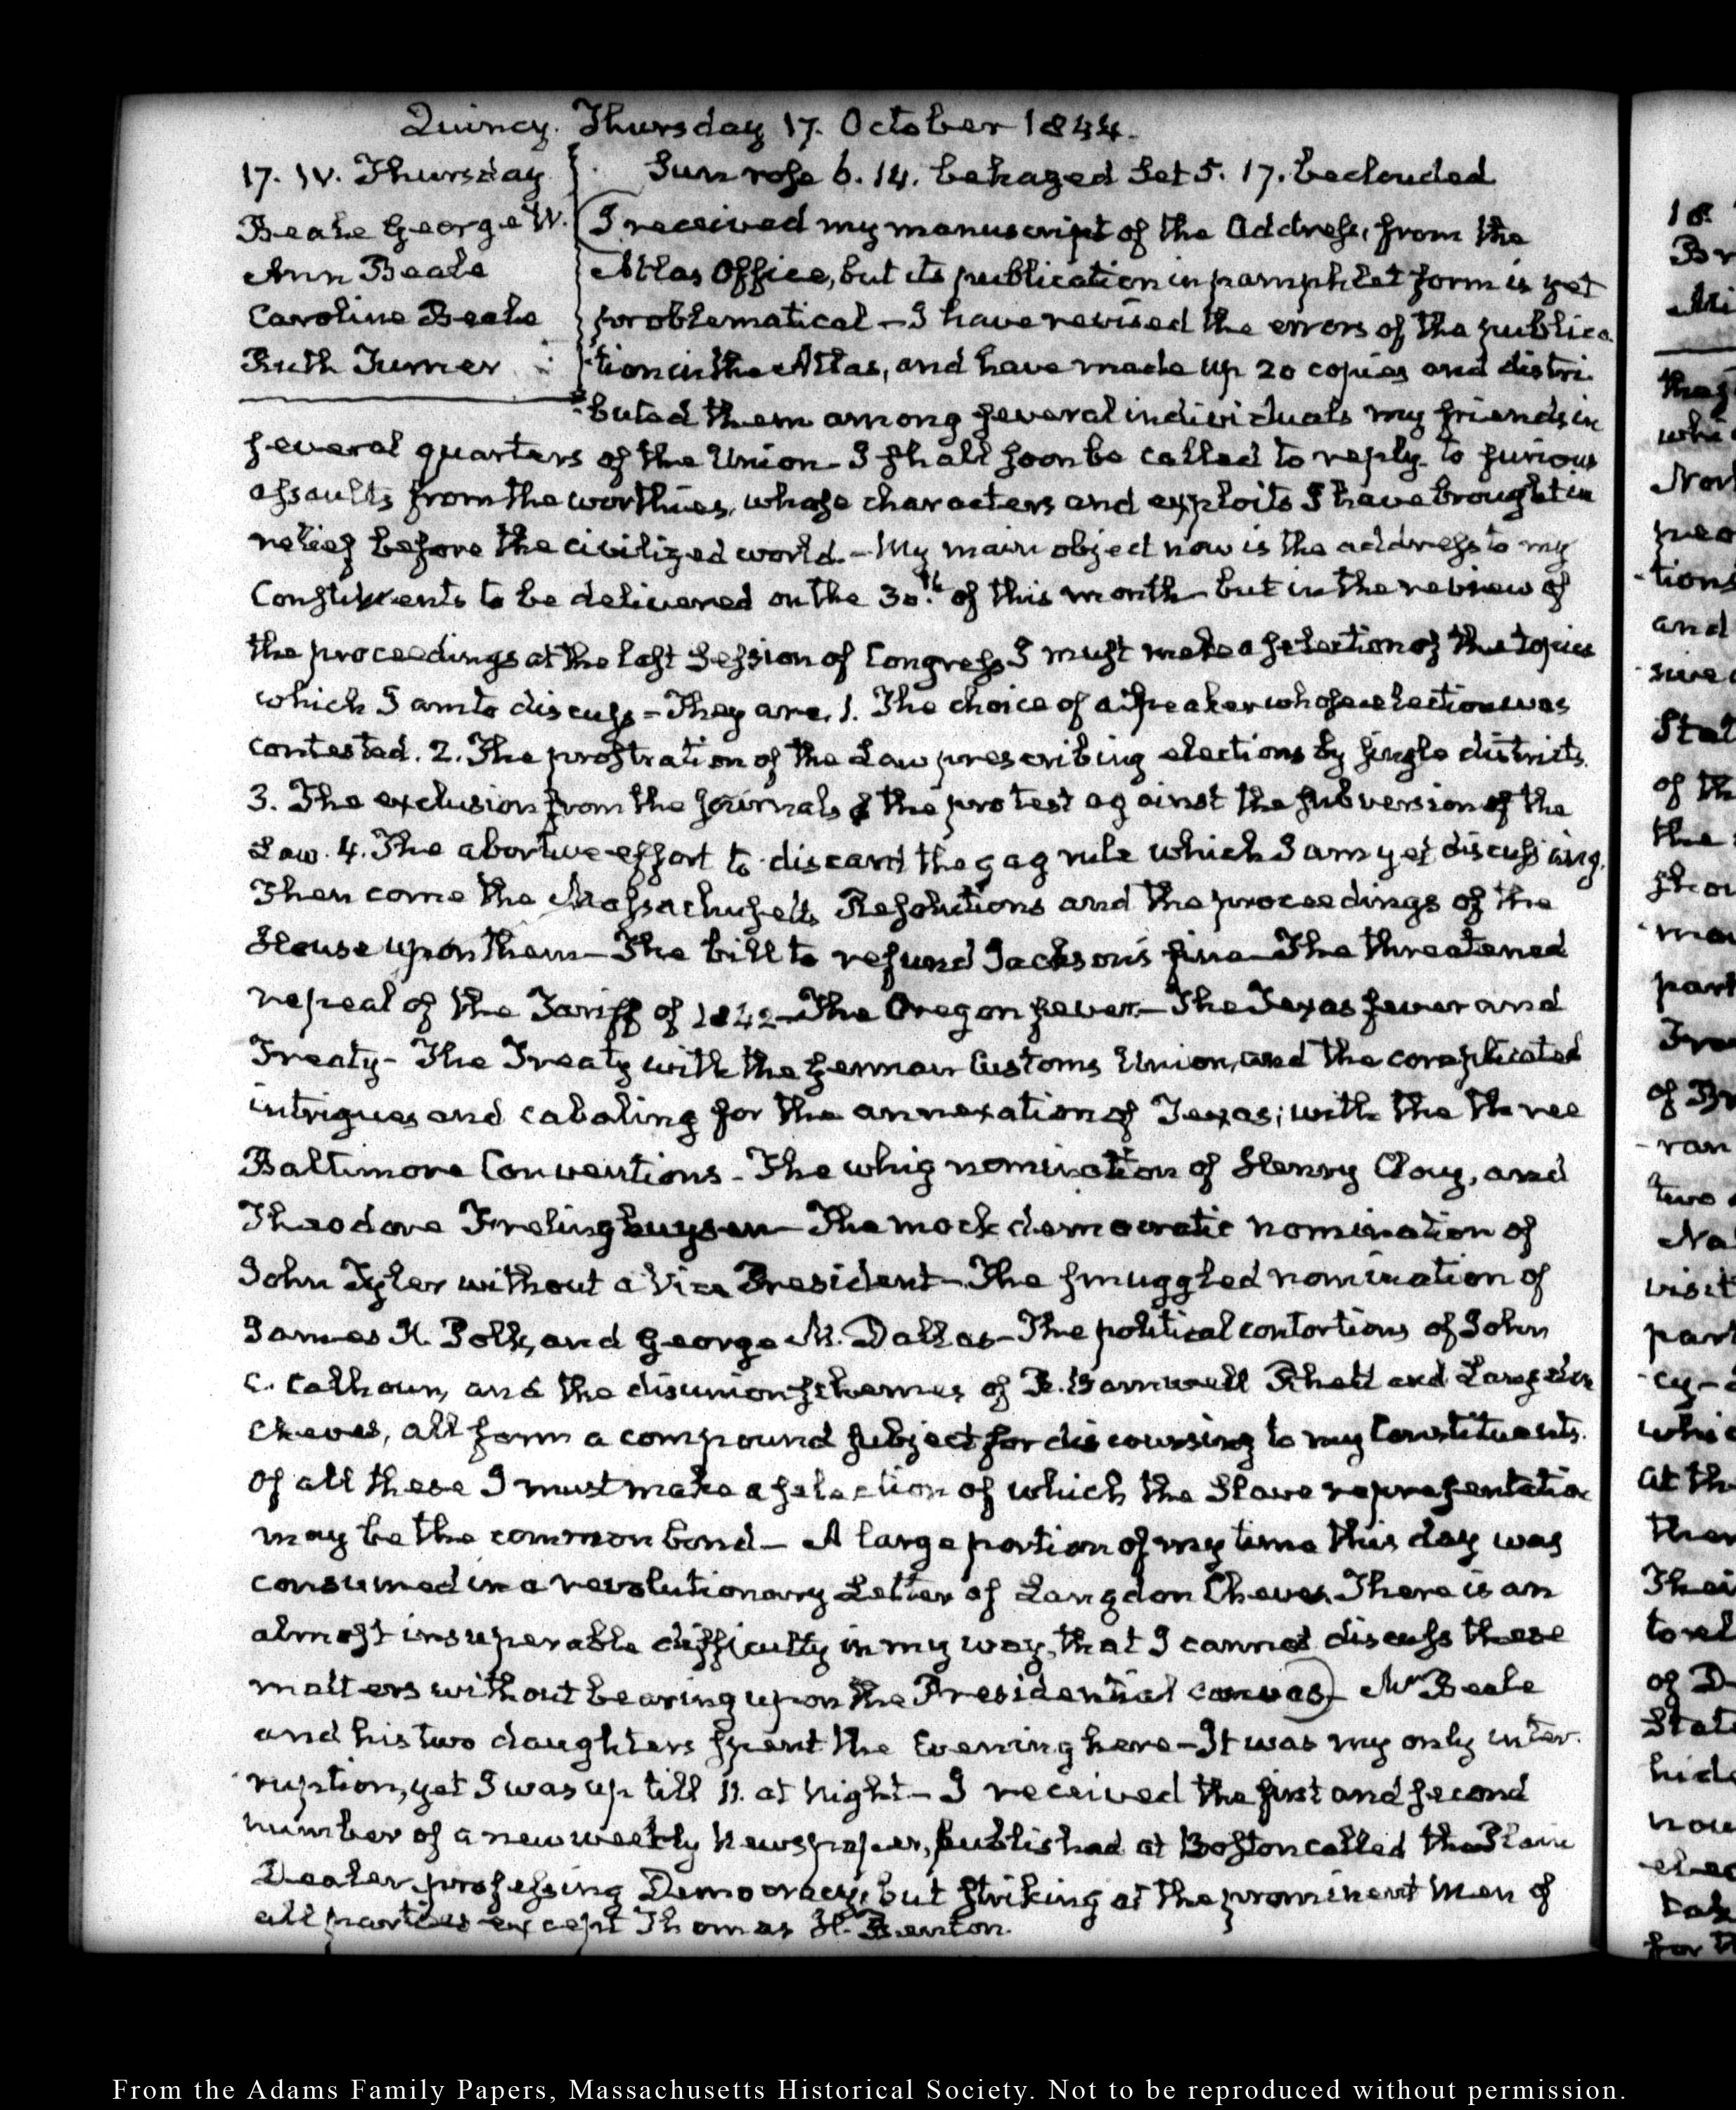 Quincy. Thursday 17. October 1844.
17. IV. Thursday
Beale George W.
Ann Beale
Caroline Beale
Ruth Turner
Sun rose 6. 14. behazed Set 5. 17. beclouded
I received my manuscript of the Address, from the
Atlas Office, but its publication in pamphlet form is yet
problematical — I have revised the errors of the publica
tion in the Atlas, and have made up 20 copies and distri-
buted them among several individuals my friends in
several quarters of the Union — I shall soon be called to reply to furious
assaults from the worthies, whose characters and exploits I have brought in
relief before the civilized world. — My main object now is the address to my
Constituents to be delivered on the 30.th of this month — but in the review of
the proceedings at the last Session of Congress I must make a selection of the topics
which I am to discuss — They are, 1. The choice of a Speaker whose election was
contested. 2. The prostration of the Law prescribing elections by single districts.
3. The exclusion from the journals of the protest against the subversion of the
Law. 4. The abortive effort to discard the gag rule which I am yet discussing.
Then come the Massachusetts Resolutions and the proceedings of the
House upon them — The bill to refund Jackson's fine — The threatened
repeal of the Tariff of 1842 — The Oregon fever — The Texas fever and
Treaty — The Treaty with the German Customs Union, and the complicated
intrigues and cabaling for the annexation of Texas; with the three
Baltimore Conventions — The whig nomination of Henry Clay, and
Theodore Frelinghuysen — The mock democratic nomination of
John Tyler without a Vice President — The smuggled nomination of
James K. Polk, and George M. Dallas — The political contortions of John
C. Calhoun, and the disunion schemes of R. Barnwell Rhett and Langdon
Cheves, all form a compound subject for discoursing to my Constituents.
Of all these I must make a selection of which the Slave representation
may be the common bond — A large portion of my time this day was
consumed in a revolutionary Letter of Langdon Cheves. There is an
almost insuperable difficulty in my way, that I cannot discuss these
matters without bearing upon the Presidential canvas) — Mr Beale
and his two daughters spent the Evening here — It was my only inter-
ruption, yet I was up till 11. at night — I received the first and second
number of a new weekly Newspaper, published at Boston called the Plain
Dealer, professing Democracy, but striking at the prominent men of
all parties except Thomas H. Benton.
From the Adams Family Papers, Massachusetts Historical Society. Not to be reproduced without permission.